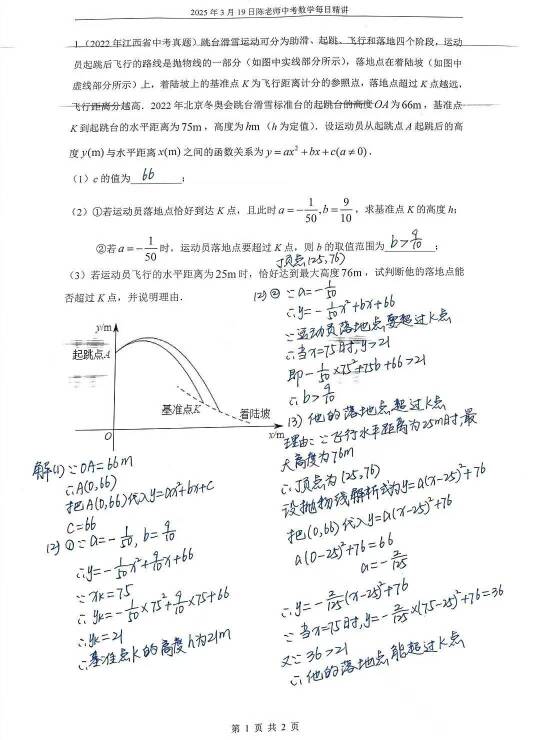 2025年3月19日陈老师中考数学每日精讲
1.(2022年江西省中考真题)跳台滑雪运动可分为助滑、起跳、飞行和落地四个阶段,运动
员起跳后飞行的路线是抛物线的一部分(如图中实线部分所示),落地点在着陆坡(如图中
虚线部分所示)上,着陆坡上的基准点K为飞行距离计分的参照点,落地点超过K点越远,
飞行距离分越高.2022年北京冬奥会跳台滑雪标准台的起跳台的高度OA为66m,基准点
K到起跳台的水平距离为75m,高度为hm(h为定值).设运动员从起跳点A起跳后的高
度y(m)与水平距离x(m)之间的函数关系为y=ax²+bx+c(a≠0).
(1)c的值为 66 ;
(2)①若运动员落地点恰好到达K点,且此时a=-1/50,b=9/10,求基准点K的高度h;
②若a=-1/50时,运动员落地点要超过K点,则b的取值范围为 b>9/10 ;
顶点(25,76)
(3)若运动员飞行的水平距离为25m时,恰好达到最大高度76m,试判断他的落地点能
否超过K点,并说明理由.
y/m
起跳点A
基准点K
着陆坡
O
x/m
解(1)∵OA=66m
∴A(0,66)
把A(0,66)代入y=ax²+bx+c
c=66
(2)①∵a=-1/50,b=9/10
∴y=-1/50x²+9/10x+66
∵xK=75
∴yK=-1/50×75²+9/10×75+66
∴yK=21
∴基准点K的高度h为21m
(2)②∵a=-1/50
∴y=-1/50x²+bx+66
∵运动员落地点要超过K点
∴当x=75时,y>21
即-1/50×75²+75b+66>21
∴b>9/10
(3)他的落地点超过K点
理由:∵飞行水平距离为25m时,最
大高度为76m
∴顶点为(25,76)
设抛物线解析式为y=a(x-25)²+76
把(0,66)代入y=a(x-25)²+76
a(0-25)²+76=66
a=-2/125
∴y=-2/125(x-25)²+76
∵当x=75时,y=-2/125×(75-25)²+76=36
又∵36>21
∴他的落地点能超过K点
第1页共2页